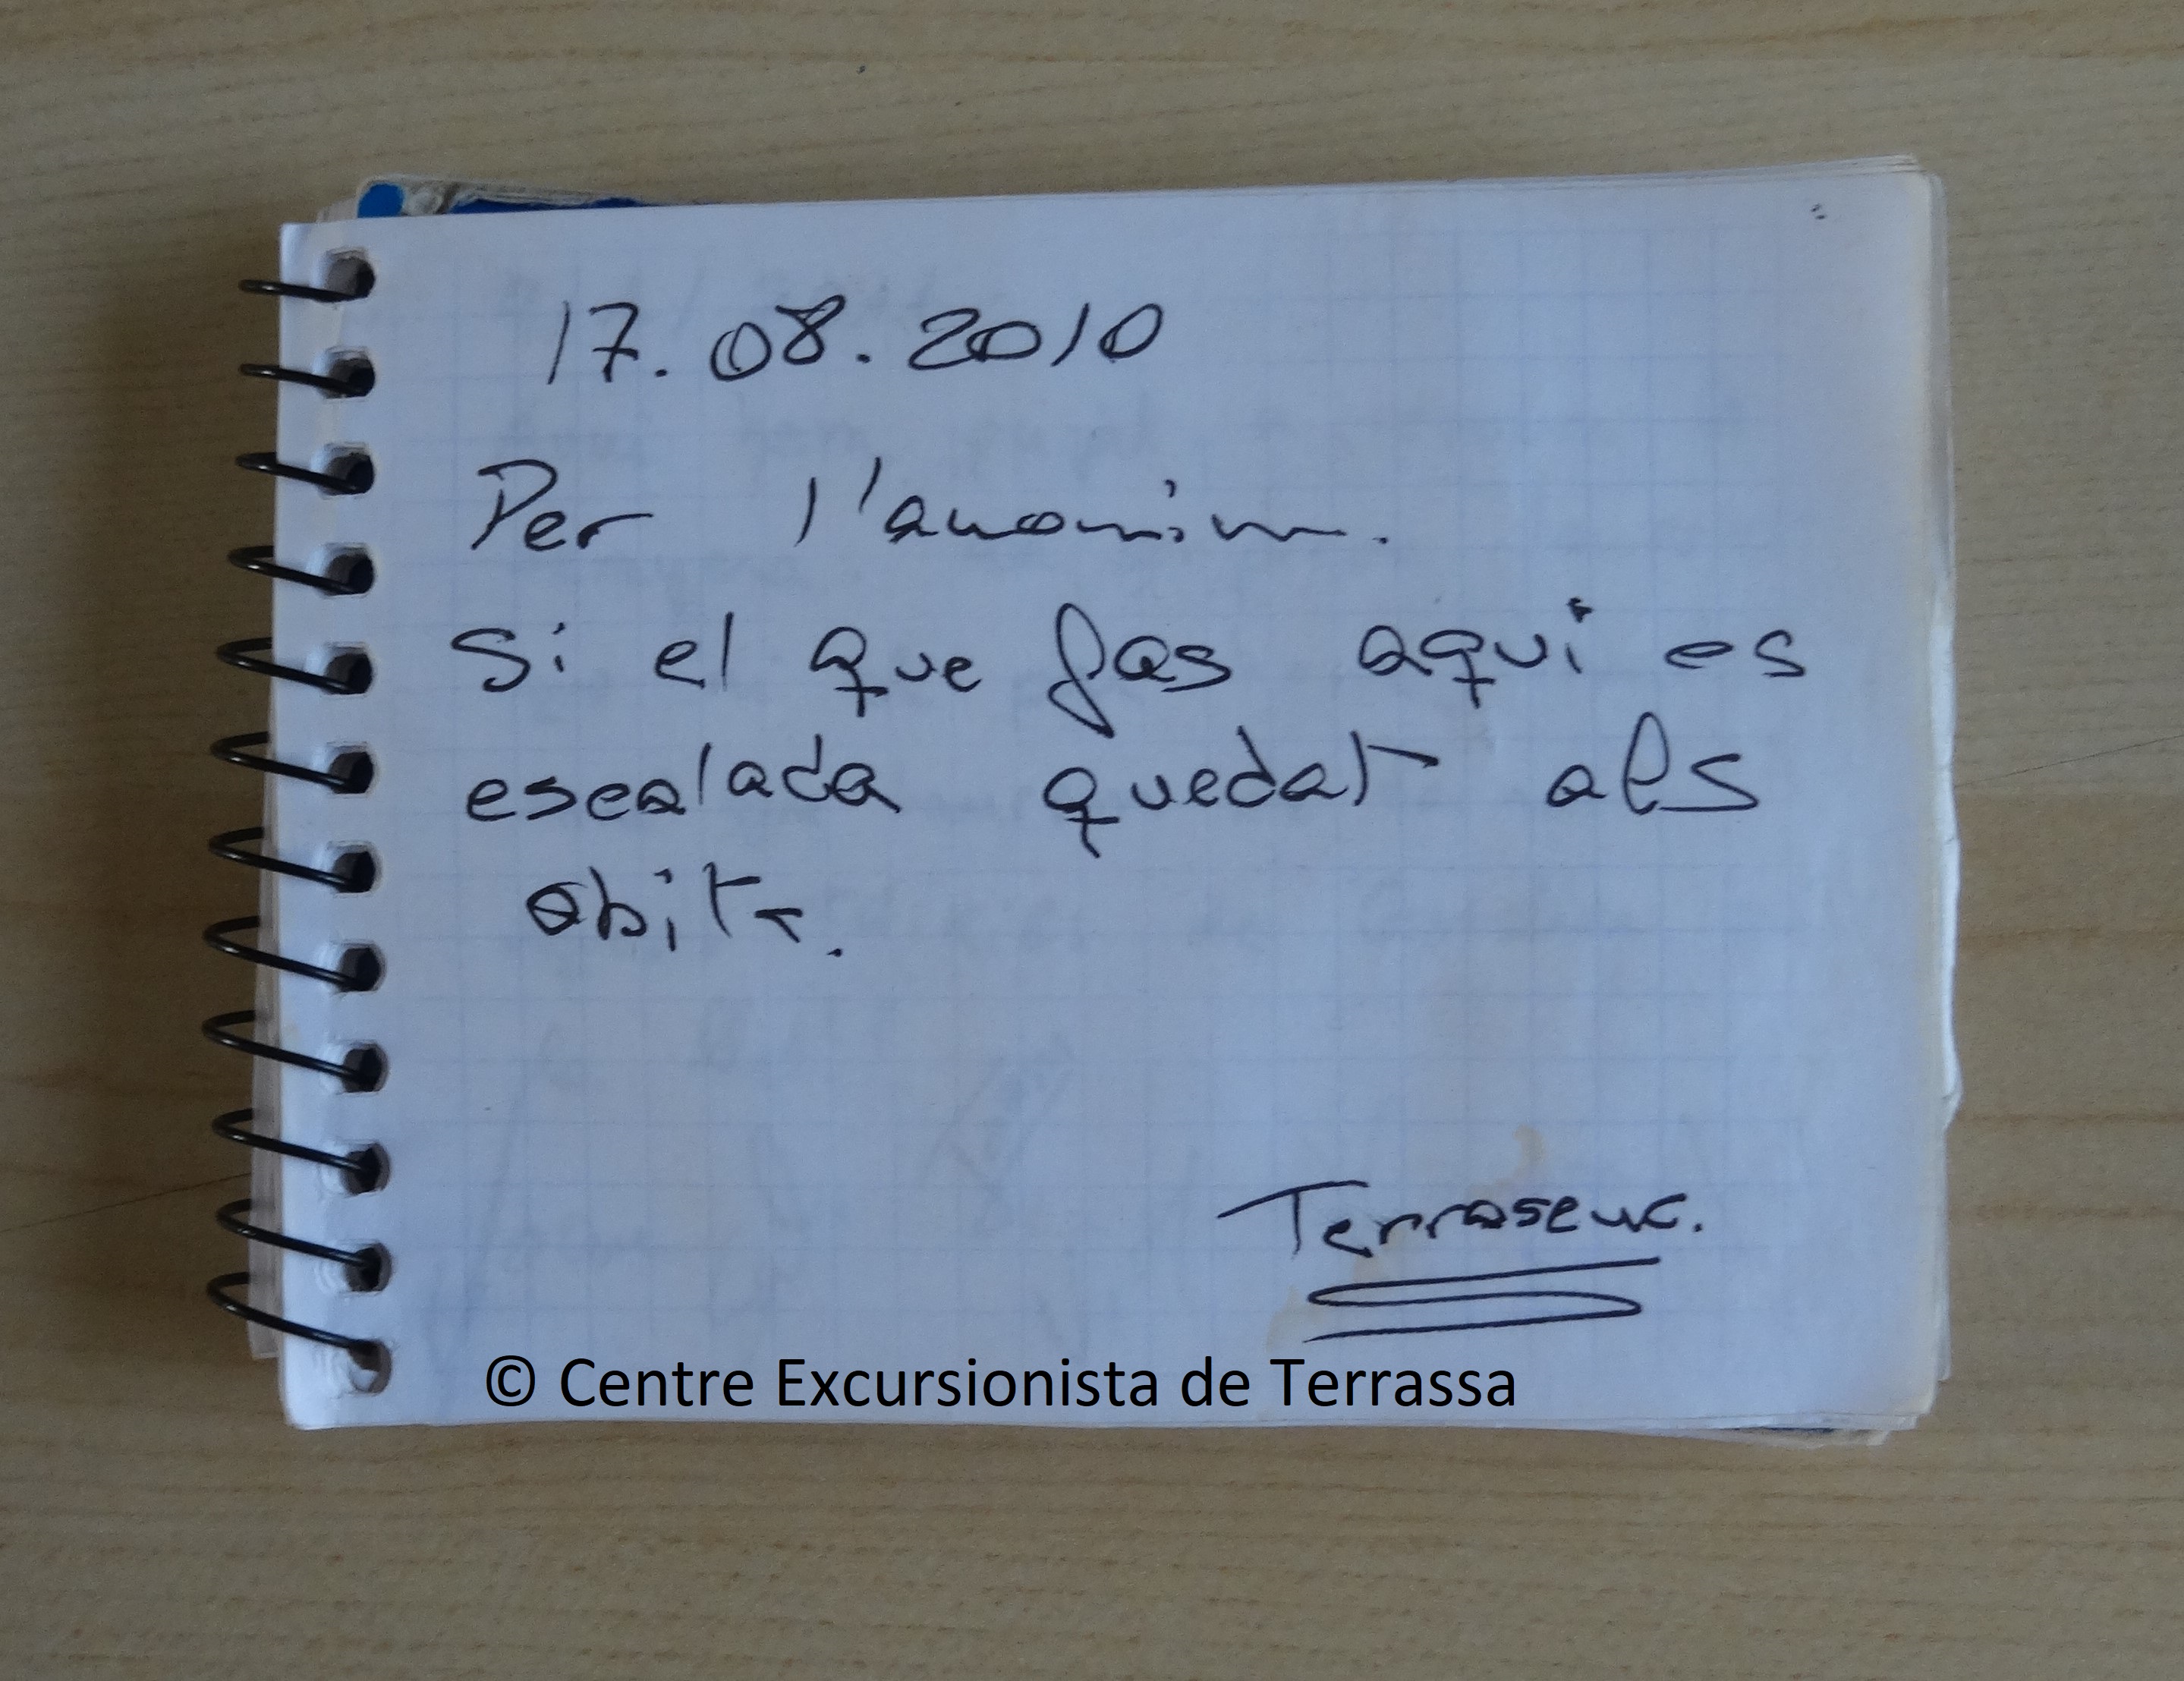 17.08.2010
Per l'anonim.
Si el que fas aquí es
escalada quedat als
abits.
Terrasenc.
© Centre Excursionista de Terrassa